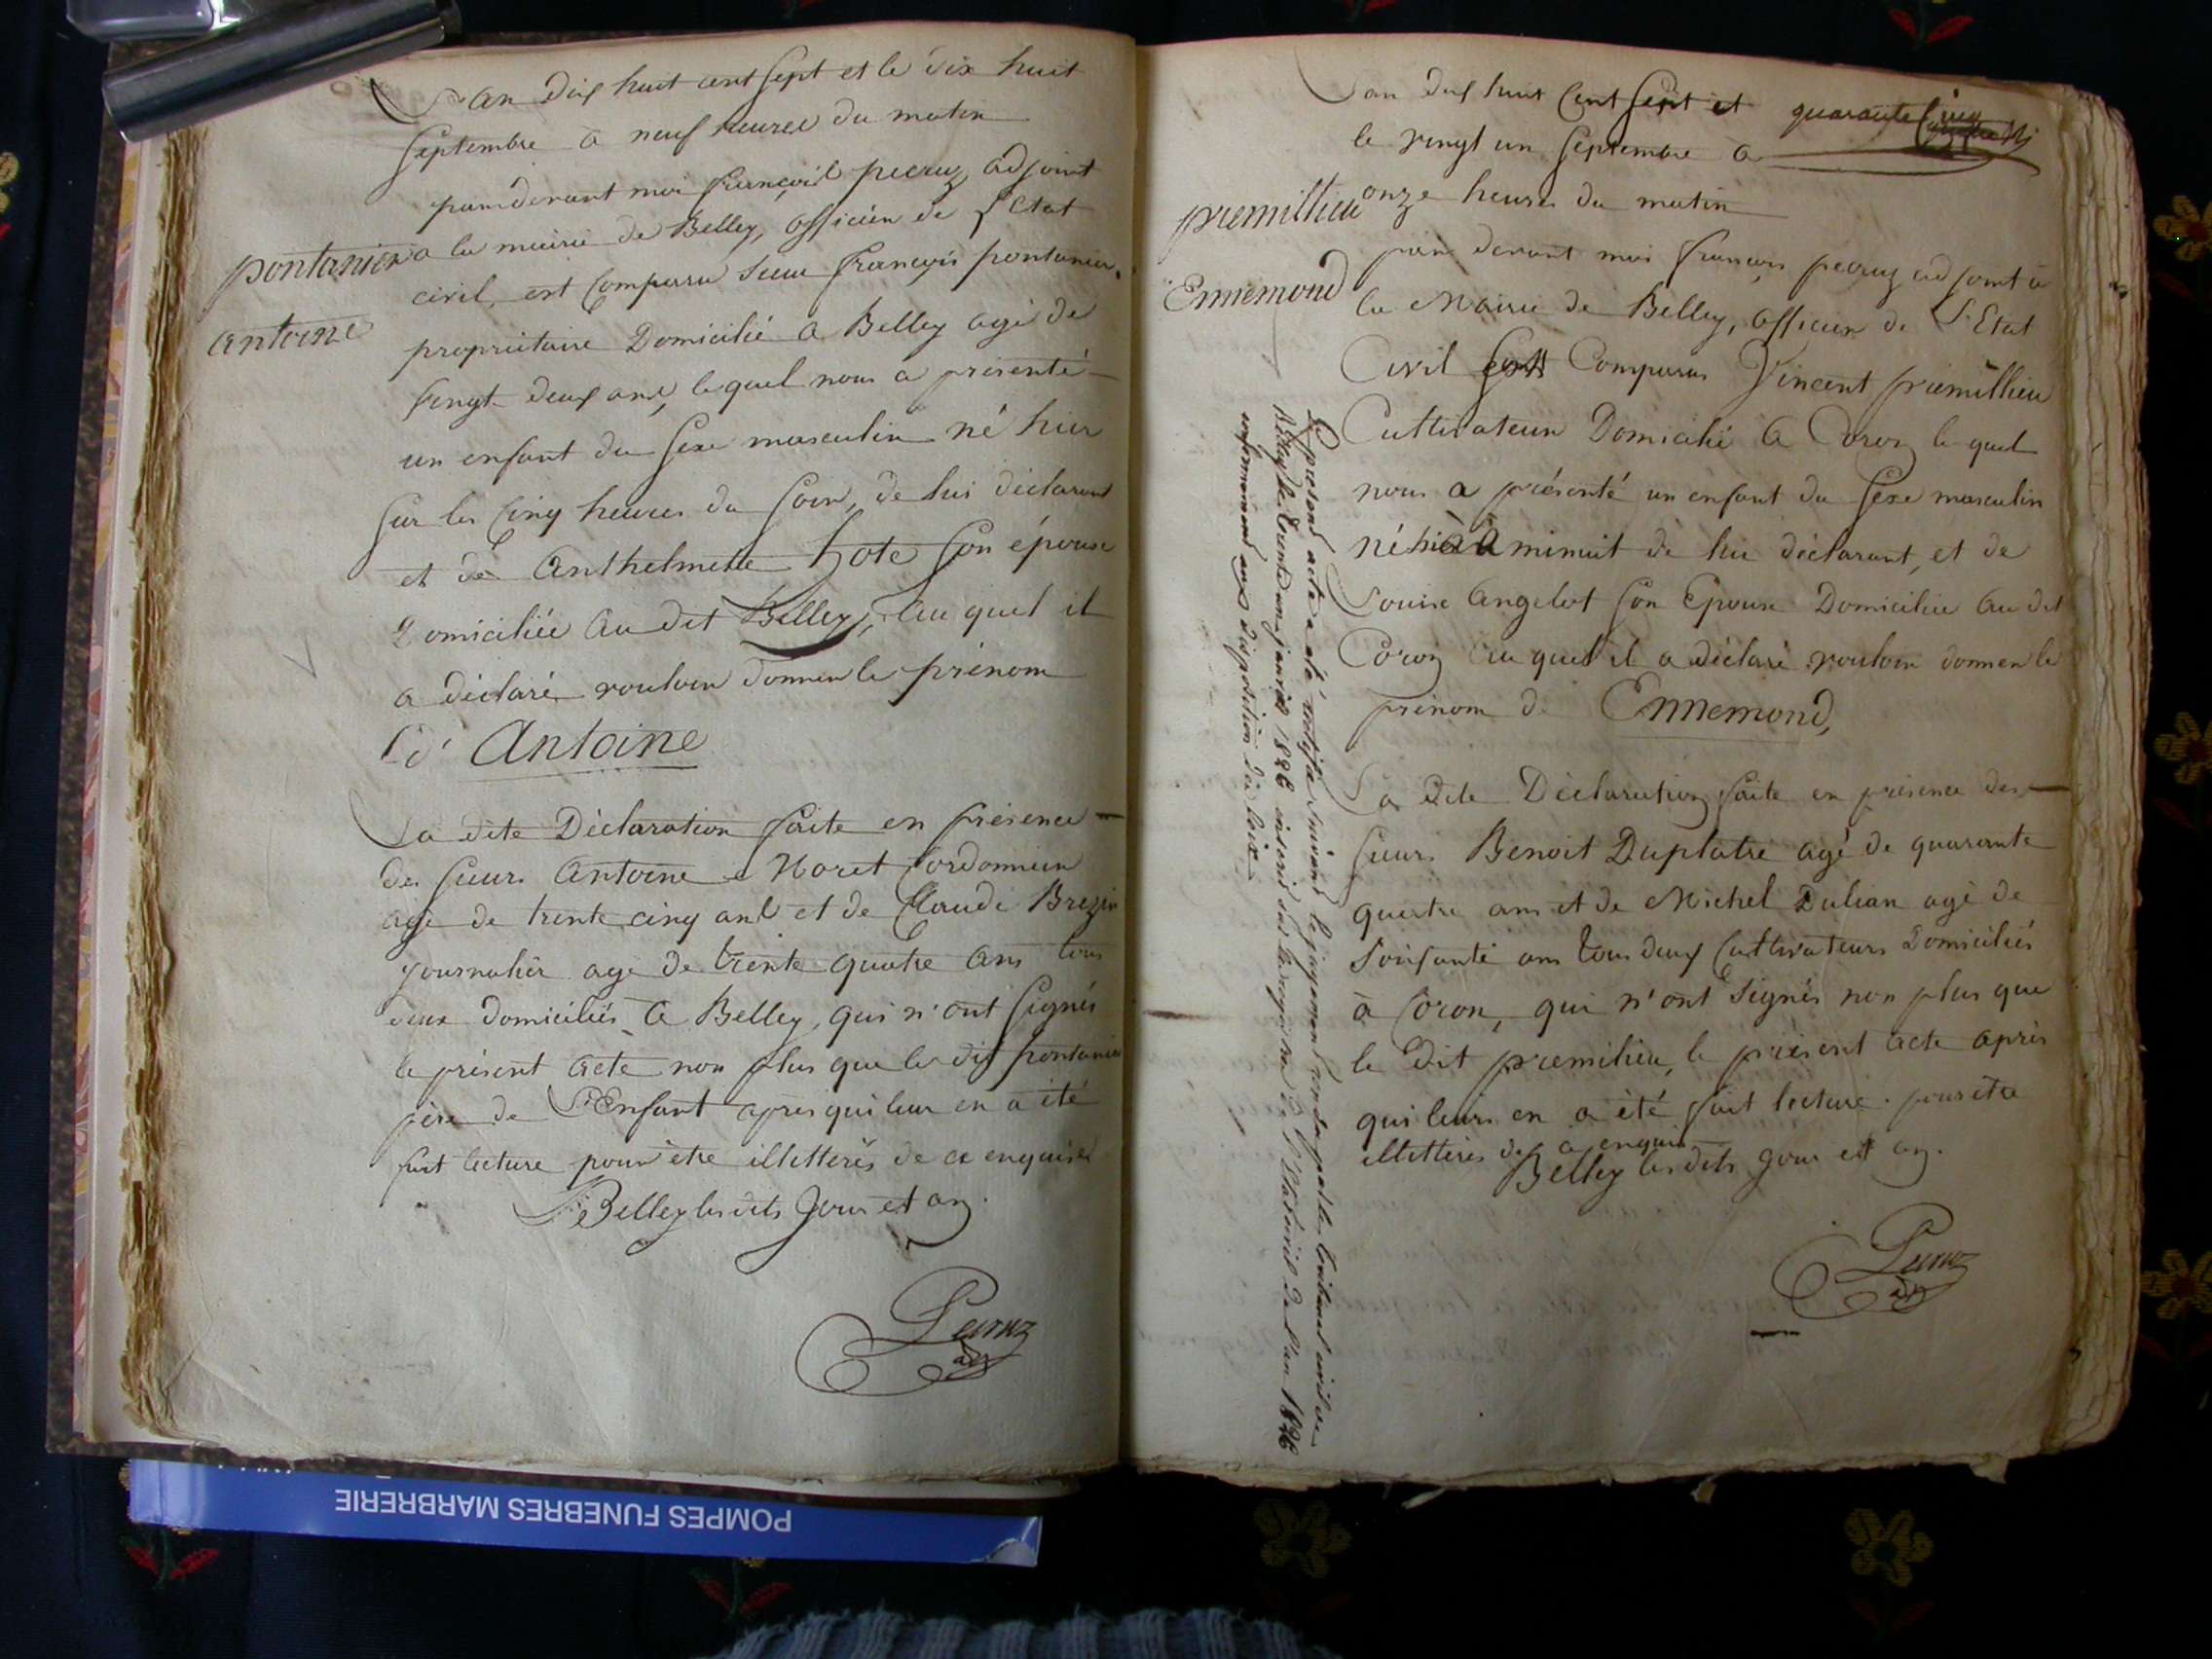 L'an dix huit cent sept et le dix huit
septembre a neuf heures du matin
pardevant moi françois pecruz adjoint
a la mairie de Belley, officier de l'Etat
civil, est comparu sieur françois pontanier
propriétaire Domicilié a Belley agé de
vingt deux ans, lequel nous a présenté
un enfant du sexe masculin né hier
sur les cinq heures du soir, de lui déclarant
et de Anthelmette hote son épouse
Domiciliée au dit Belley, au quel il
a déclaré vouloir donner le prénom
d' Antoine
pontanier
antoine
La dite Déclaration faite en présence
des sieurs Antoine Moret cordonnier
agé de trente cinq ans et de Claude Brezin
journalier agé de trente quatre ans tous
deux domiciliés a Belley, qui n'ont signés
le présent acte non plus que le dit pontanier
père de l'Enfant après qui leur en a été
fait lecture pour être illetterés de ce enquis
Belley les dits jour et an.
Pecruz
adj
quarante cinq
L'an dix huit cent sept et
le vingt un septembre a
onze heures du matin
premillieu
Ennemond
par devant moi françois pecruz adjoint a
la Mairie de Belley, officier de l'Etat
Civil Comparus Vincent premillieu
Cultivateur Domicilié a Coron le quel
nous a présenté un enfant du sexe masculin
né hier a minuit de lui déclarant, et de
Louise angelot son Epouse Domiciliée au dit
Coron au quel il a déclaré vouloir donner le
prénom de Ennemond,
La dite Déclaration faite en présence des
sieurs Benoit Duplatre agé de quarante
quatre ans et de Michel Dulian agé de
soixante ans tous deux cultivateurs Domiciliés
a Coron, qui n'ont signés non plus que
le dit premilieu, le présent acte après
qui leurs en a été fait lecture. pour être
illetterés de ce enquis
Belley les dits jour et an.
Pecruz
adj
Le présend acte a été rectifié suivand le jugemend rendu par le tribunal civil de
Belley le trente un janvier 1826 inséré sur le registre de l'Etat civil de l'an 1826
conformémend aux disposition des loix
POMPES FUNEBRES MARBRERIE